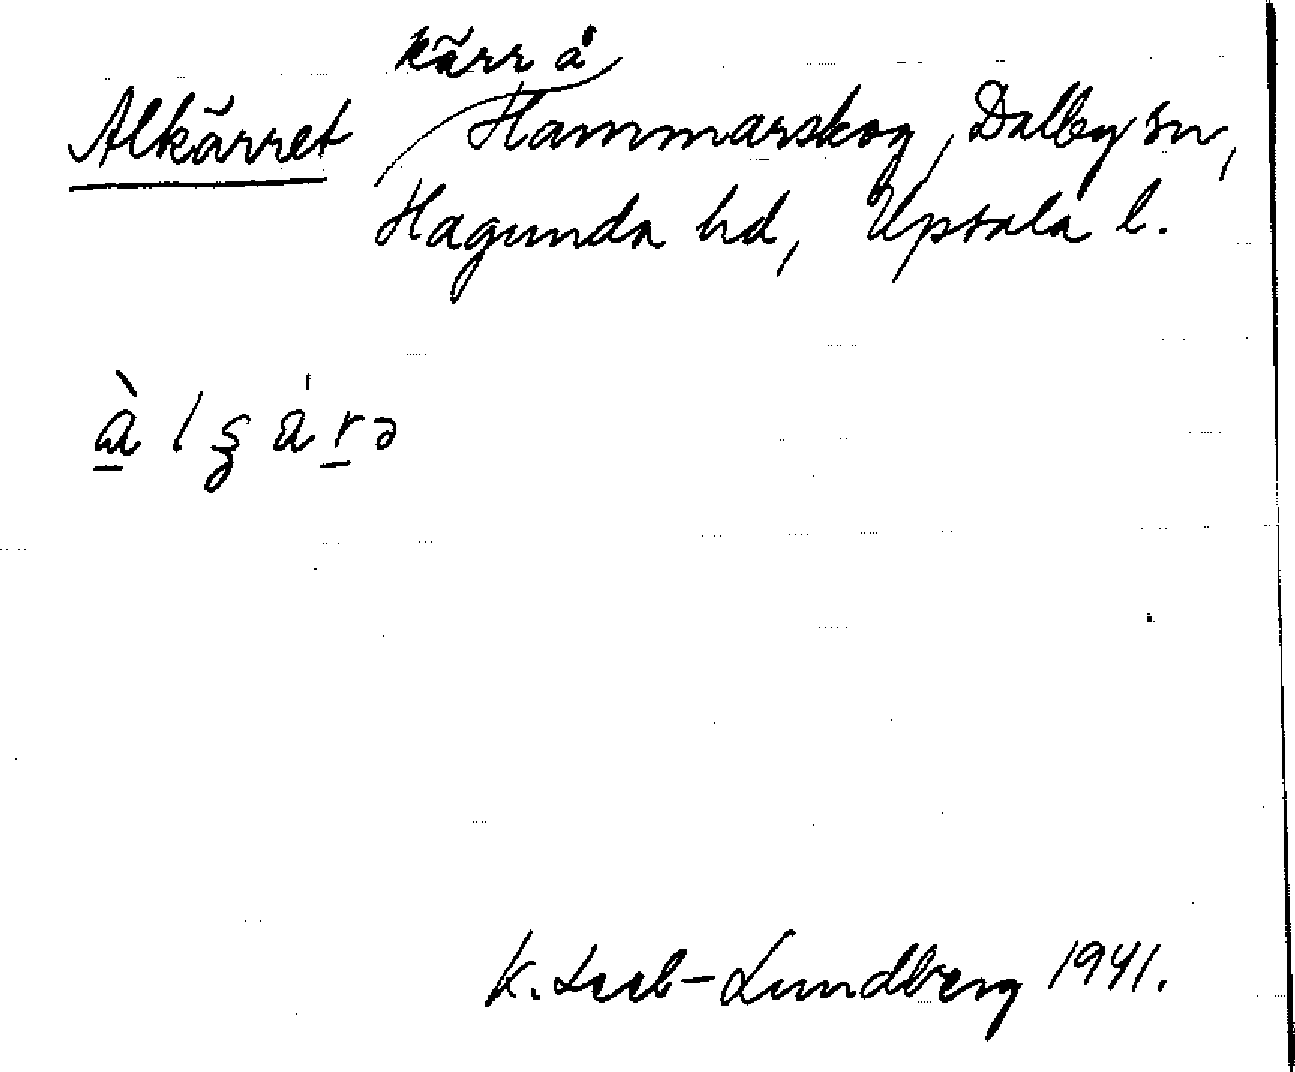 kärr å
Alkärret Hammarskog, Dalby sn,
Hagunda hd, Upsala l.
1941.